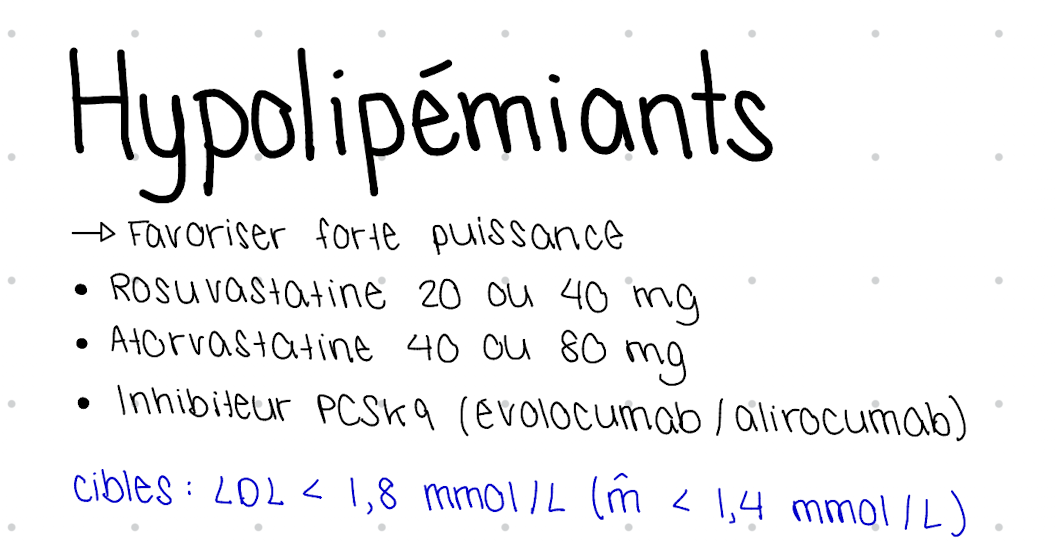 Hypolipémiants
→ Favoriser forte puissance
• Rosuvastatine 20 ou 40 mg
• Atorvastatine 40 ou 80 mg
• Inhibiteur PCSK9 (évolocumab / alirocumab)
cibles : LDL < 1,8 mmol/L (m̂ < 1,4 mmol/L)